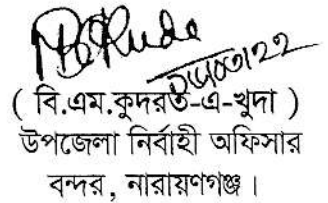 ( বি.এম.কুদরত-এ-খুদা )
উপজেলা নির্বাহী অফিসার
বন্দর, নারায়ণগঞ্জ।